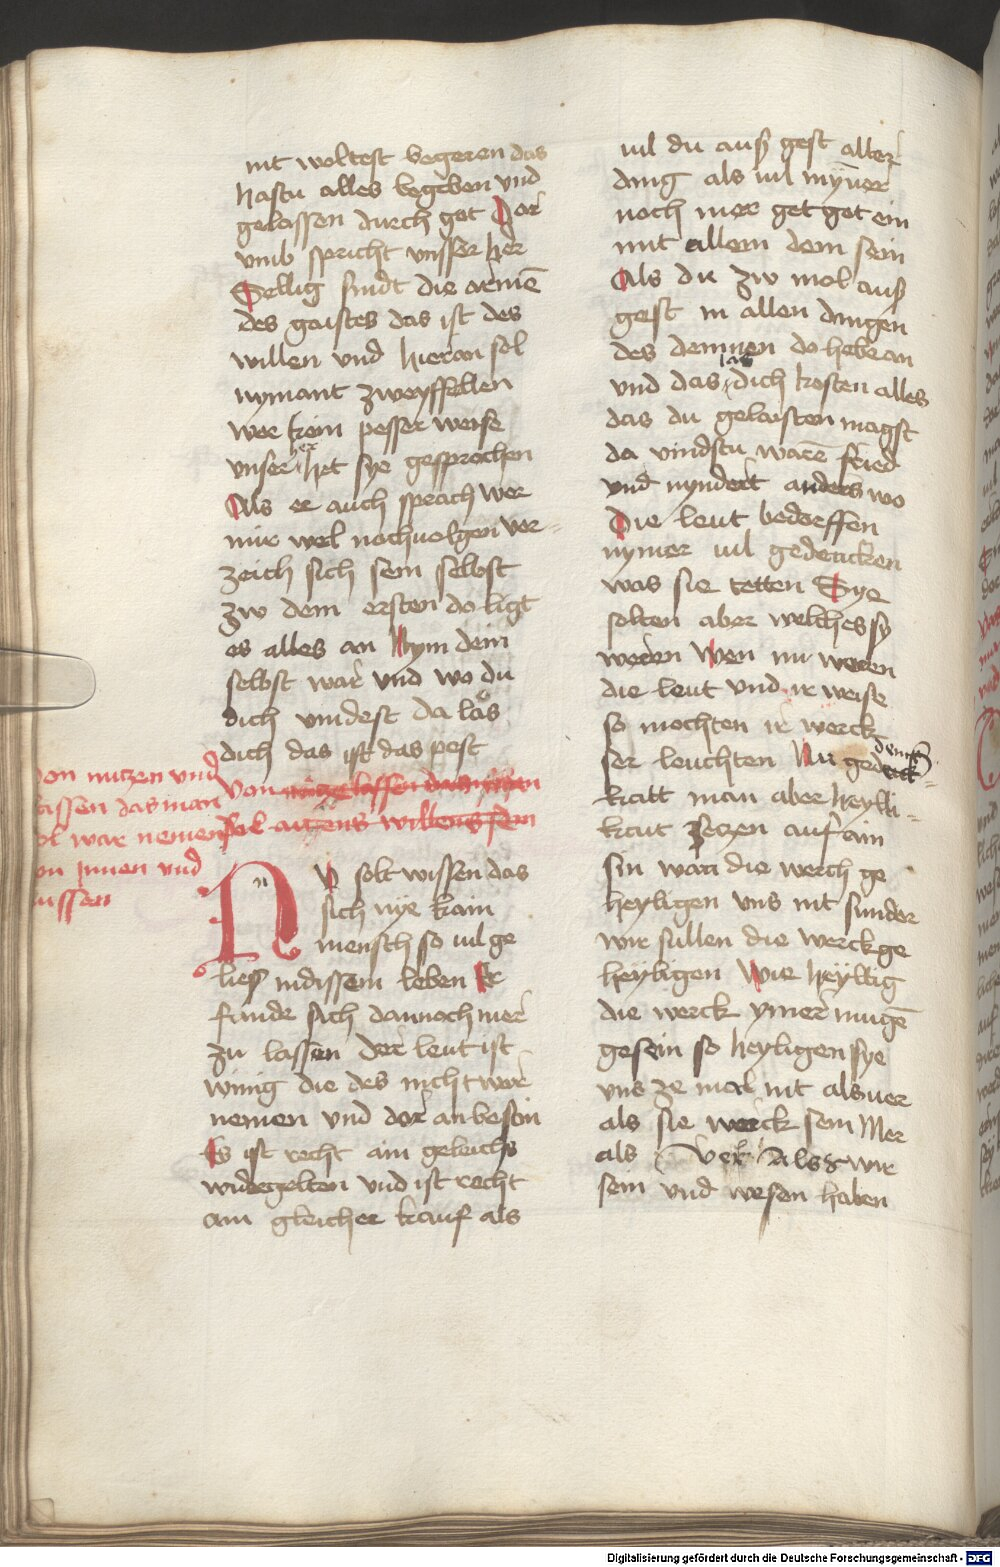 nit woltest begeren das
hastu alles begeben und
gelassen durch got Dar
umb spricht unsser her
Sellig sindt die armē
des gaistes das ist des
willen und hieran sol
nymant zweyffellen
wer kein pesser weise
unser her het sye gesprochen
Als er auch sprach wer
mir wel nochuolgen ver-
zeich sich sein selbst
zw dem ersten do ligt
es alles an Nym dein
selbst war und wo du
dich vindest da las
dich das ist das pest
von nutzen und
lassen das man
sol war nemen
von innen und
aussen
von lassen
sol aigens willens sein
NU solt wissen das
sich nye kain
mensch so uil ge
lies indissem leben Er
funde sich dannoch mer
zu lassen der leut ist
winig die des nicht war
nemen und dor an bestein
Es ist recht ain geleichs
widergelten und ist recht
ain gleicher kauf als
uil du aus gest aller
ding als uil mynner
noch mer get got ein
mit allem dem sein
Als du zw mol aus
gest in allen dingen
des deinnen do hebe an
und das las dich kosten alles
das du gelaisten magst
da vindstu warē fried
und nyndert anders wo
Die leut bedorffen
nymer uil gedencken
was sie tetten Sye
solten aber welches sy
weren Wen nu weren
die leut und ir weise
so mochten ir werck
ser leuchten Nu gedenck
katt man aber heylli-
kait setzen auf ain
sin wan die werch ge
heyligen uns nit sunder
wir sullen die werck ge
heyligen Wie heyllig
die werck ymer mugē
gesein so heyligen sye
uns ze mal nit als uer
als sie werck sein Mer
als ver Als wir
sein und wesen haben
Digitalisierung gefördert durch die Deutsche Forschungsgemeinschaft - DFG